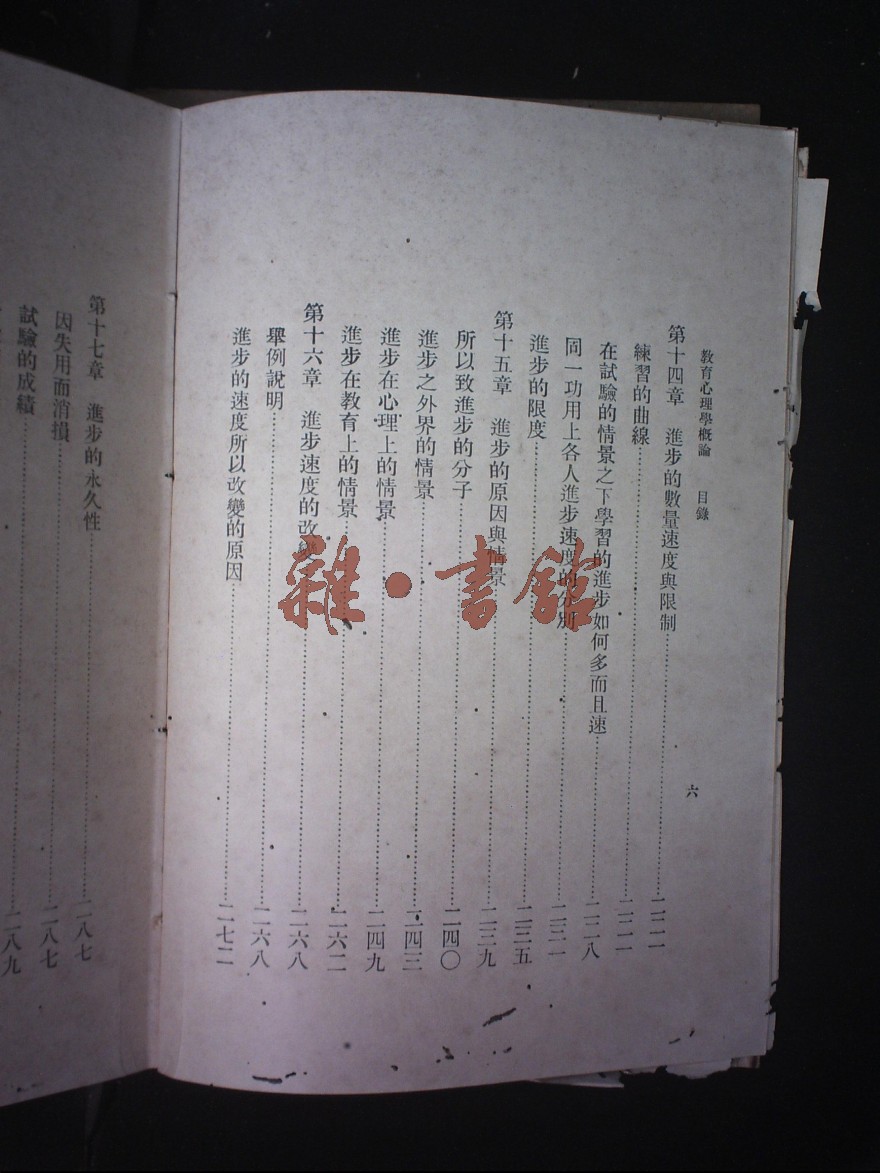 教育心理學概論 目錄
六
第十四章 進步的數量速度與限制……二二一
練習的曲線……二二一
在試驗的情景之下學習的進步如何多而且速……二二八
同一功用上各人進步速度的分別……二三一
進步的限度……二三五
第十五章 進步的原因與情景……二三九
所以致進步的分子……二四〇
進步之外界的情景……二四三
進步在心理上的情景……二四九
進步在教育上的情景……二六二
第十六章 進步速度的改變……二六八
舉例說明……二六八
進步的速度所以改變的原因……二七二
第十七章 進步的永久性……二八七
因失用而消損……二八七
試驗的成績……二八九
雜·書館